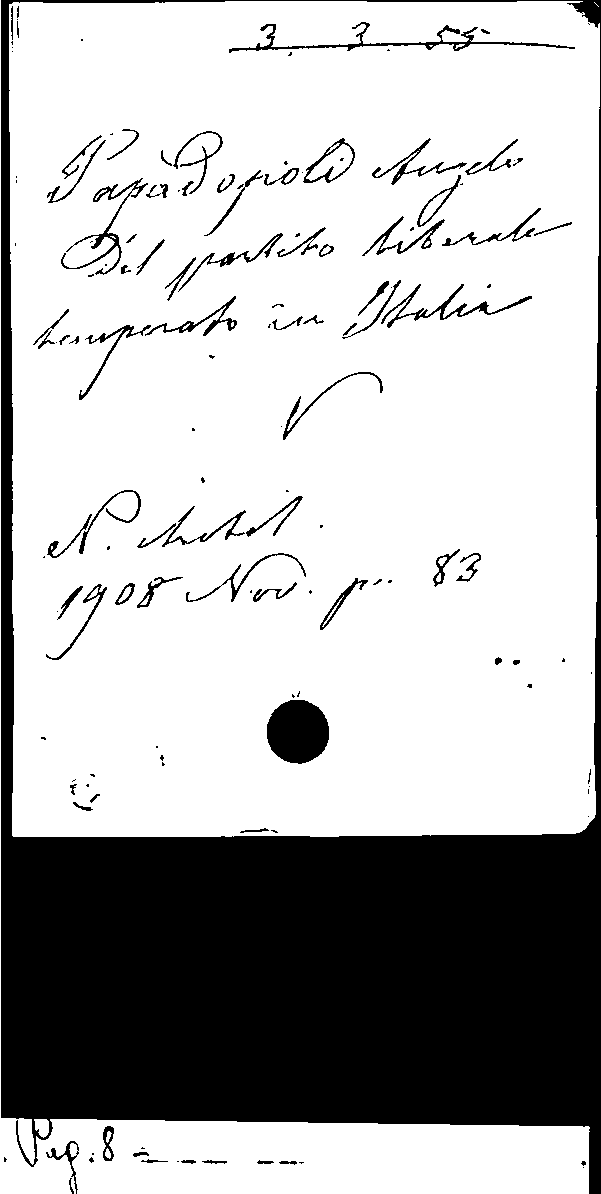 3 3 55
Papadopoli Angelo
Del partito liberale
temperato in Italia
V
N. Antol.
1908 Nov. p. 83
Pag. 8